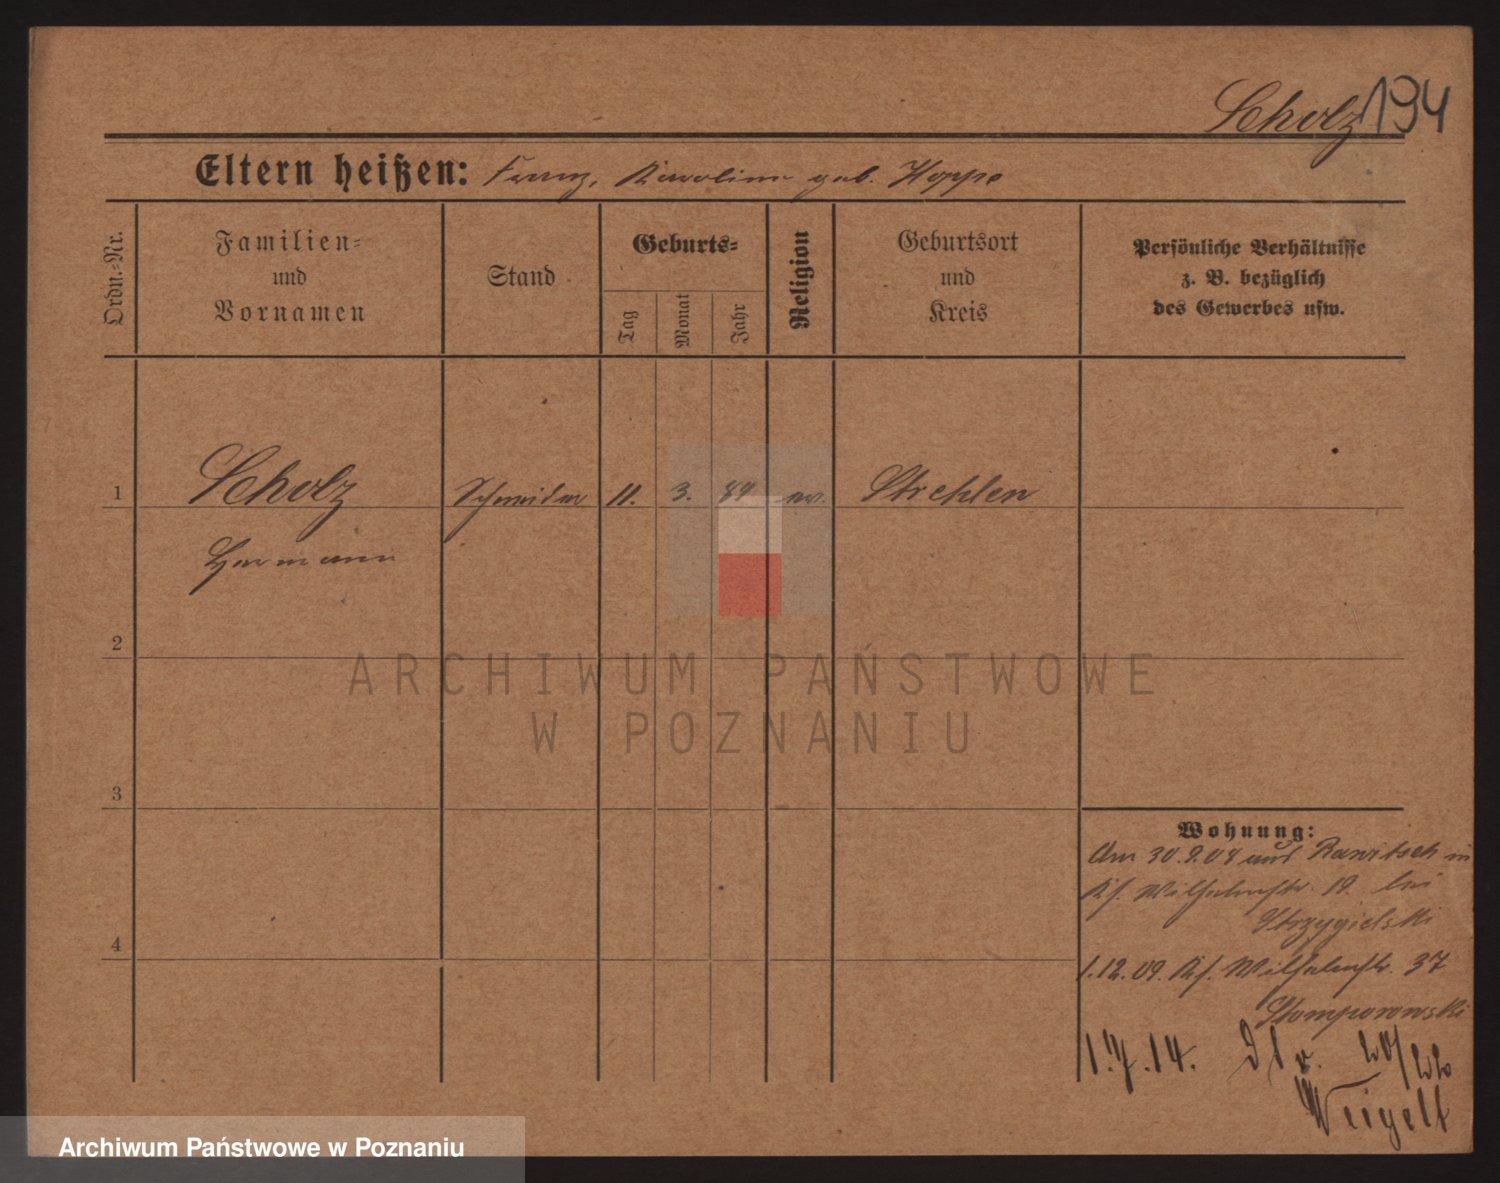 Scholz 194
Eltern heißen: Franz, Karoline geb. Hoppe
Ordn.-Nr.
Familien- und Vornamen
Stand
Geburts-
Tag
Monat
Jahr
Religion
Geburtsort und Kreis
Persönliche Verhältnisse
z. B. bezüglich
des Gewerbes usw.
1 Scholz Schneider 11. 3. 84 ev. Strehlen
Hermann
2
3
4
Wohnung:
Am 30.9.08 aus Rawitsch in
Kf. Wilhelmstr. 19. bei
Strzygielski
1.12.09. Kf. Wilhelmstr. 37
Stomporowski
1.7.14.
Weigelt
ARCHIWUM PAŃSTWOWE
W POZNANIU
Archiwum Państwowe w Poznaniu